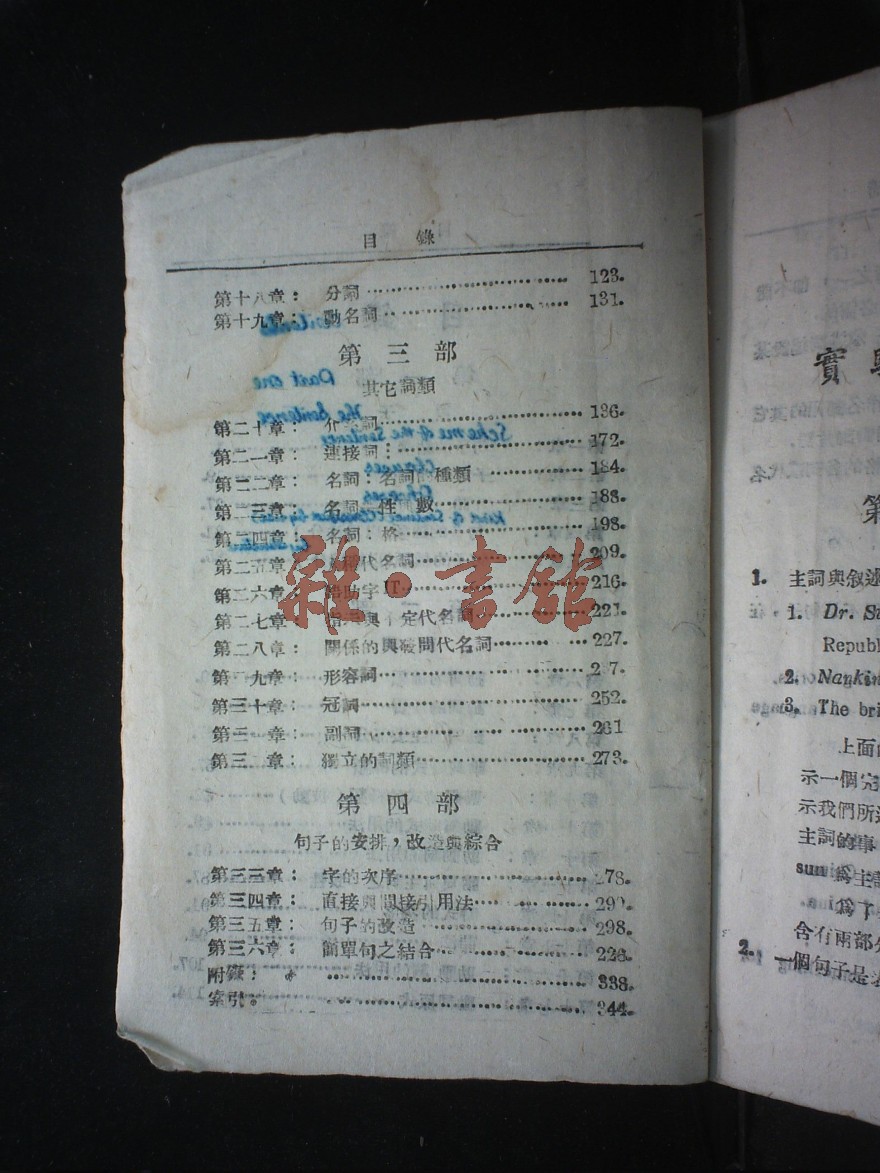 目錄
第十八章： 分詞 123.
第十九章： 動名詞 131.
第三部
其它詞類
第二十章： 介詞 136.
第二一章： 連接詞： 172.
第二二章： 名詞：名詞 種類 184.
第二三章： 名詞 性 數 188.
第二四章： 名詞：格 198.
第二五章： 代名詞 209.
第二六章： 助字 IT 216.
第二七章： 與 定代名詞 221.
第二八章： 關係的與疑問代名詞 227.
第 九章： 形容詞 2 7.
第三十章： 冠詞 252.
第三 章： 副詞 261
第三 章： 獨立的詞類 273.
第四部
句子的安排，改造與綜合
第三三章： 字的次序 78.
第三四章： 直接與間接引用法 290.
第三五章： 句子的改造 298.
第三六章： 簡單句之結合 226.
附錄： 338.
索引。 344.
Part one
The Sentence
Scheme of the Sentence
Clauses
Phrases
雜·書館
實
第
1. 主詞與敘述
1. Dr. S
Republ
2. Nankin
3. The bri
上面
示一個完
示我們所
主詞的事
爲主
爲了
含有兩部分
2. 一個句子是